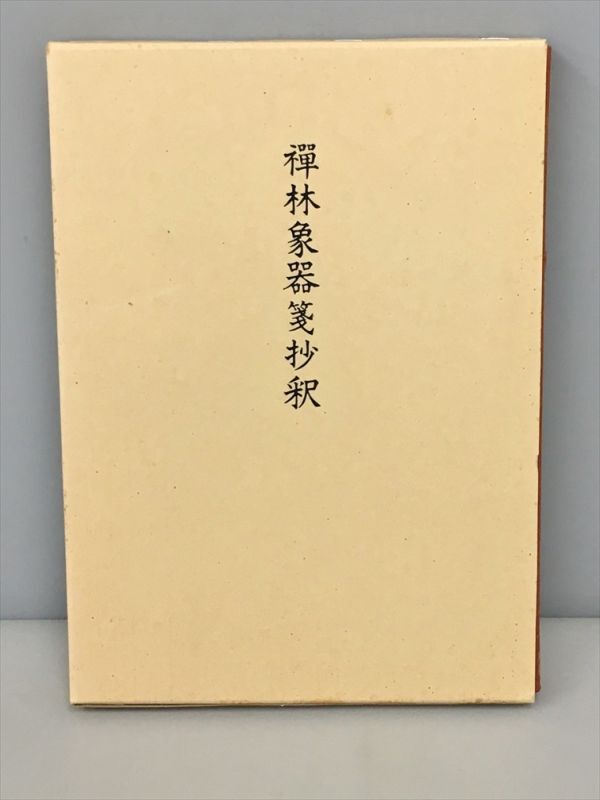 禪林象器箋抄釈